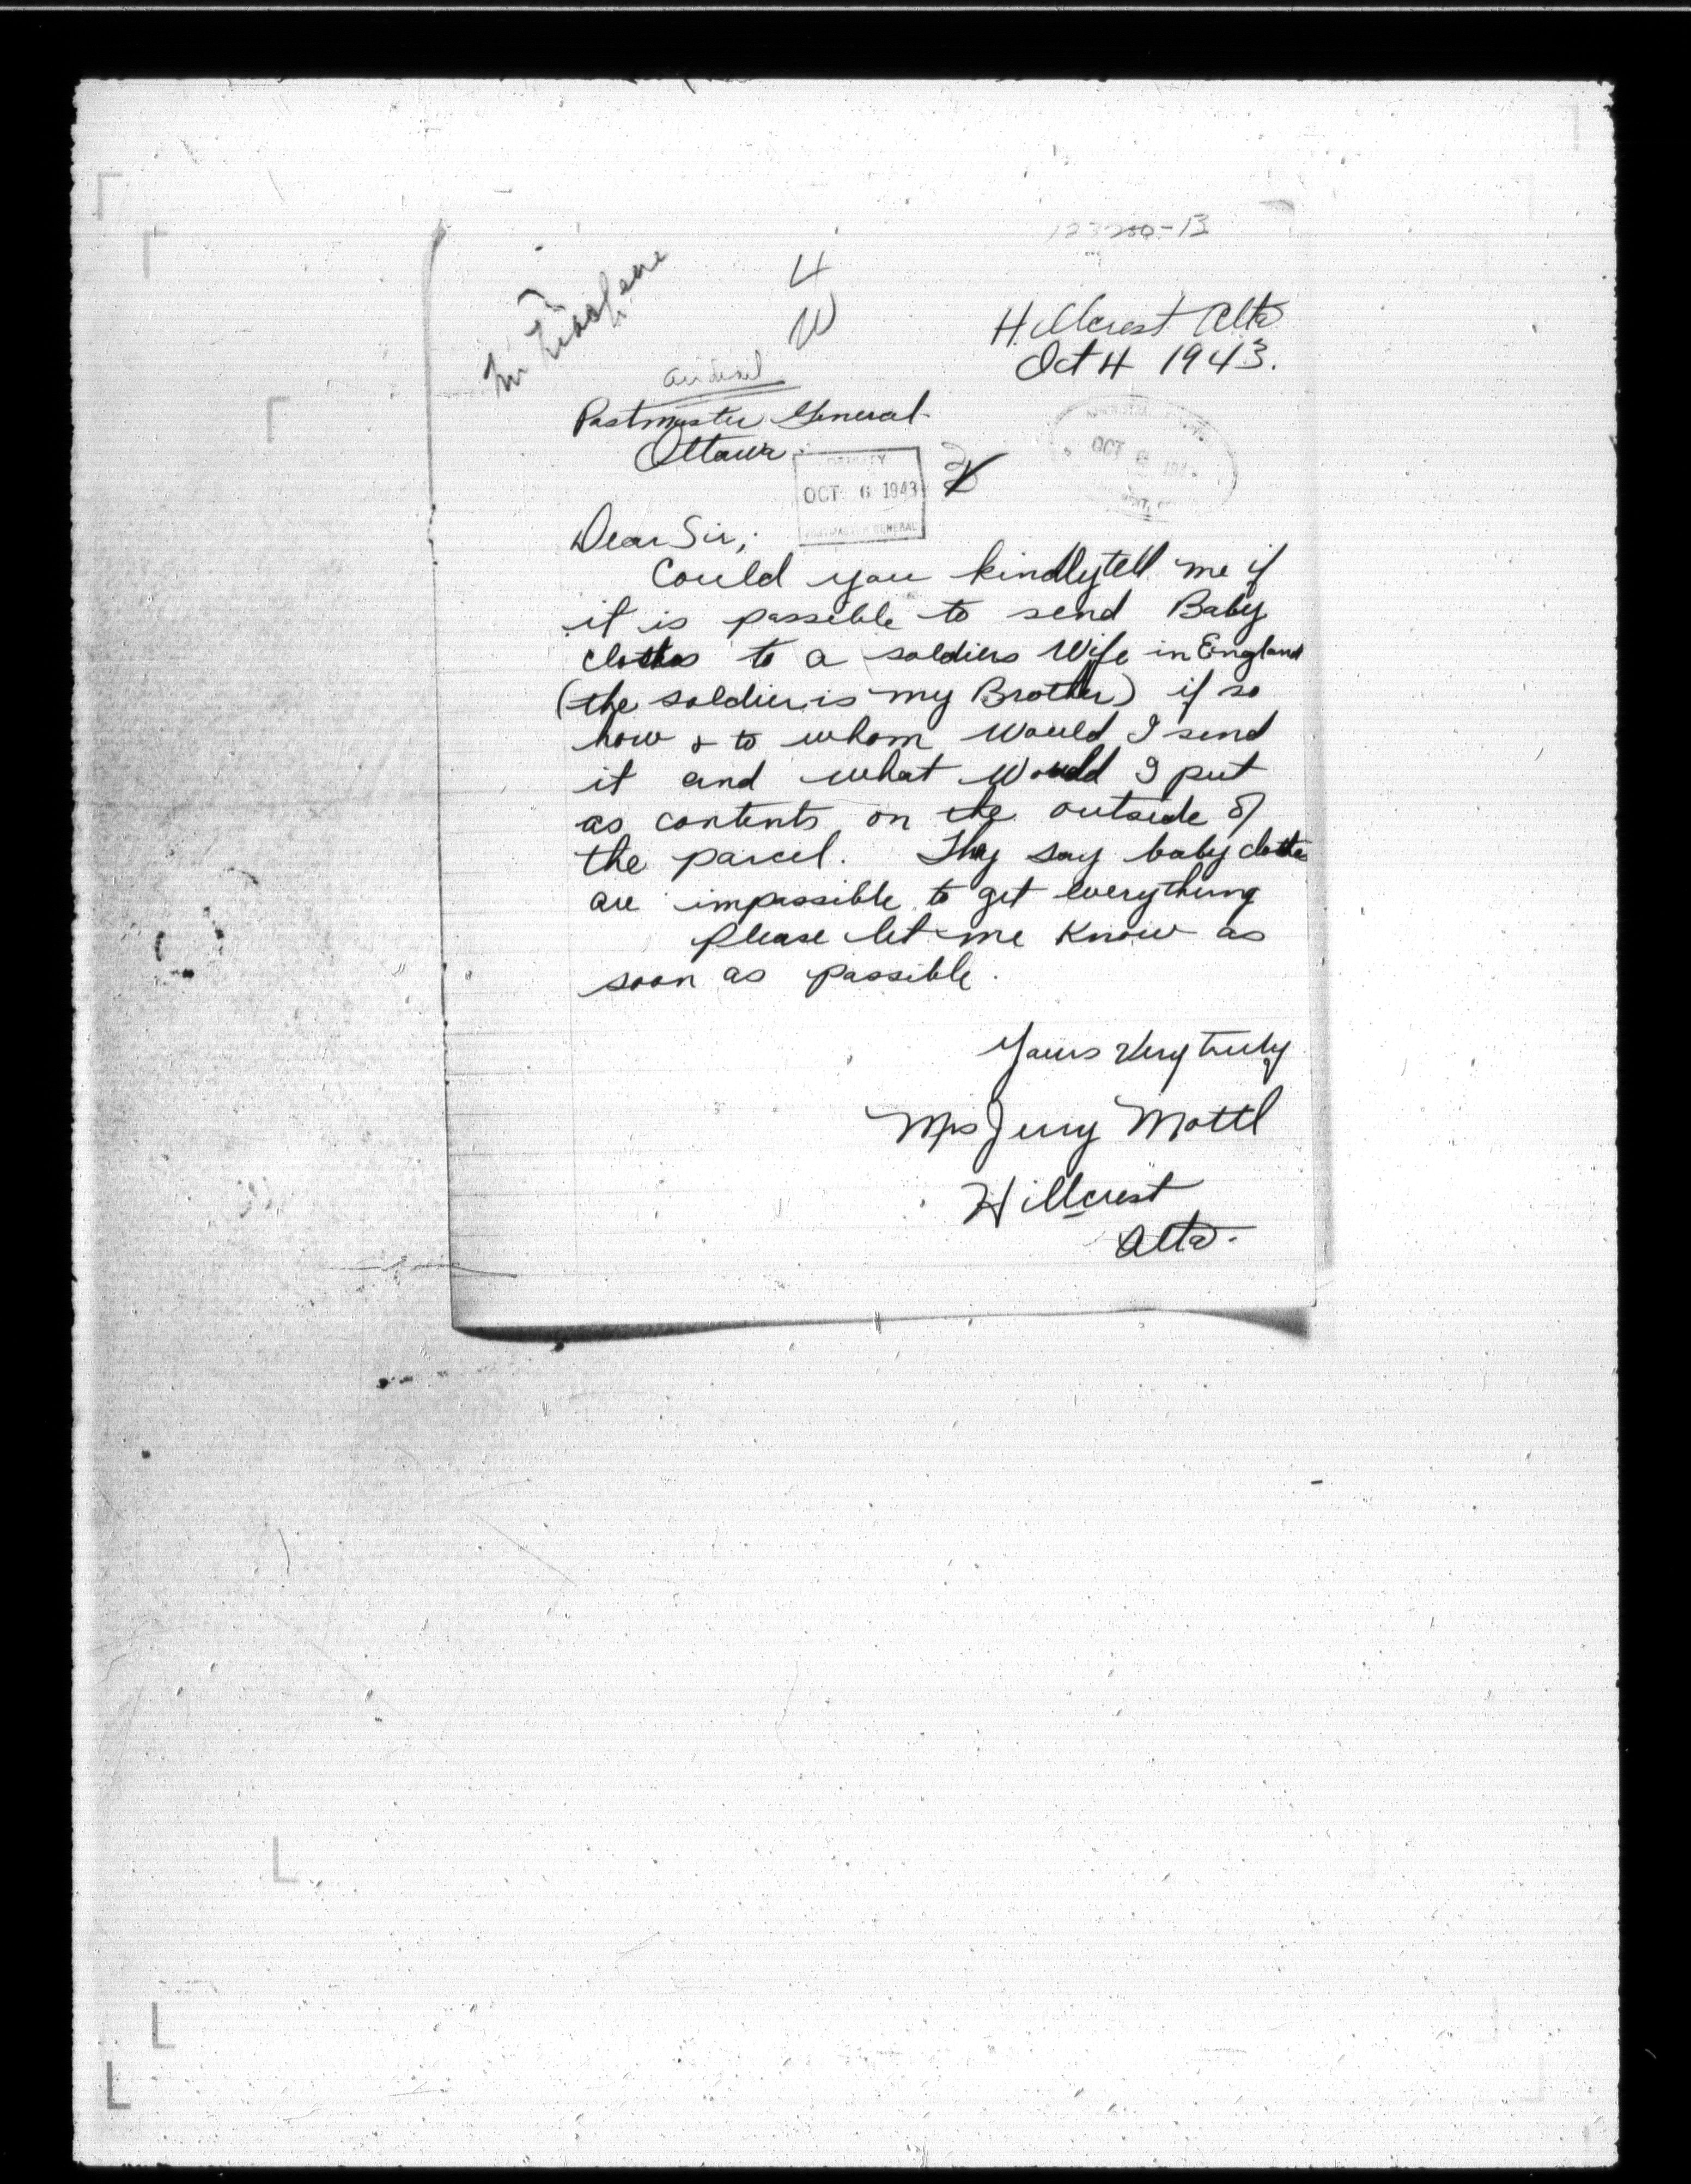 123200-B
4
W
Hillcrest Alta
Oct 4 1943.
Postmaster General
Ottawa.
OCT 6 1943
POSTMASTER GENERAL
OCT 6 194
Dear Sir,
Could you kindly tell me if
it is possible to send Baby
clothes to a soldiers Wife in England
(the soldier is my Brother) if so
how & to whom Would I send
it and what Would I put
as contents on the outside of
the parcel. They say baby clothes
are impossible to get everything
Please let me Know as
soon as possible.
Yours Very truly
Mrs Jerry Mottl
Hillcrest
Alta.